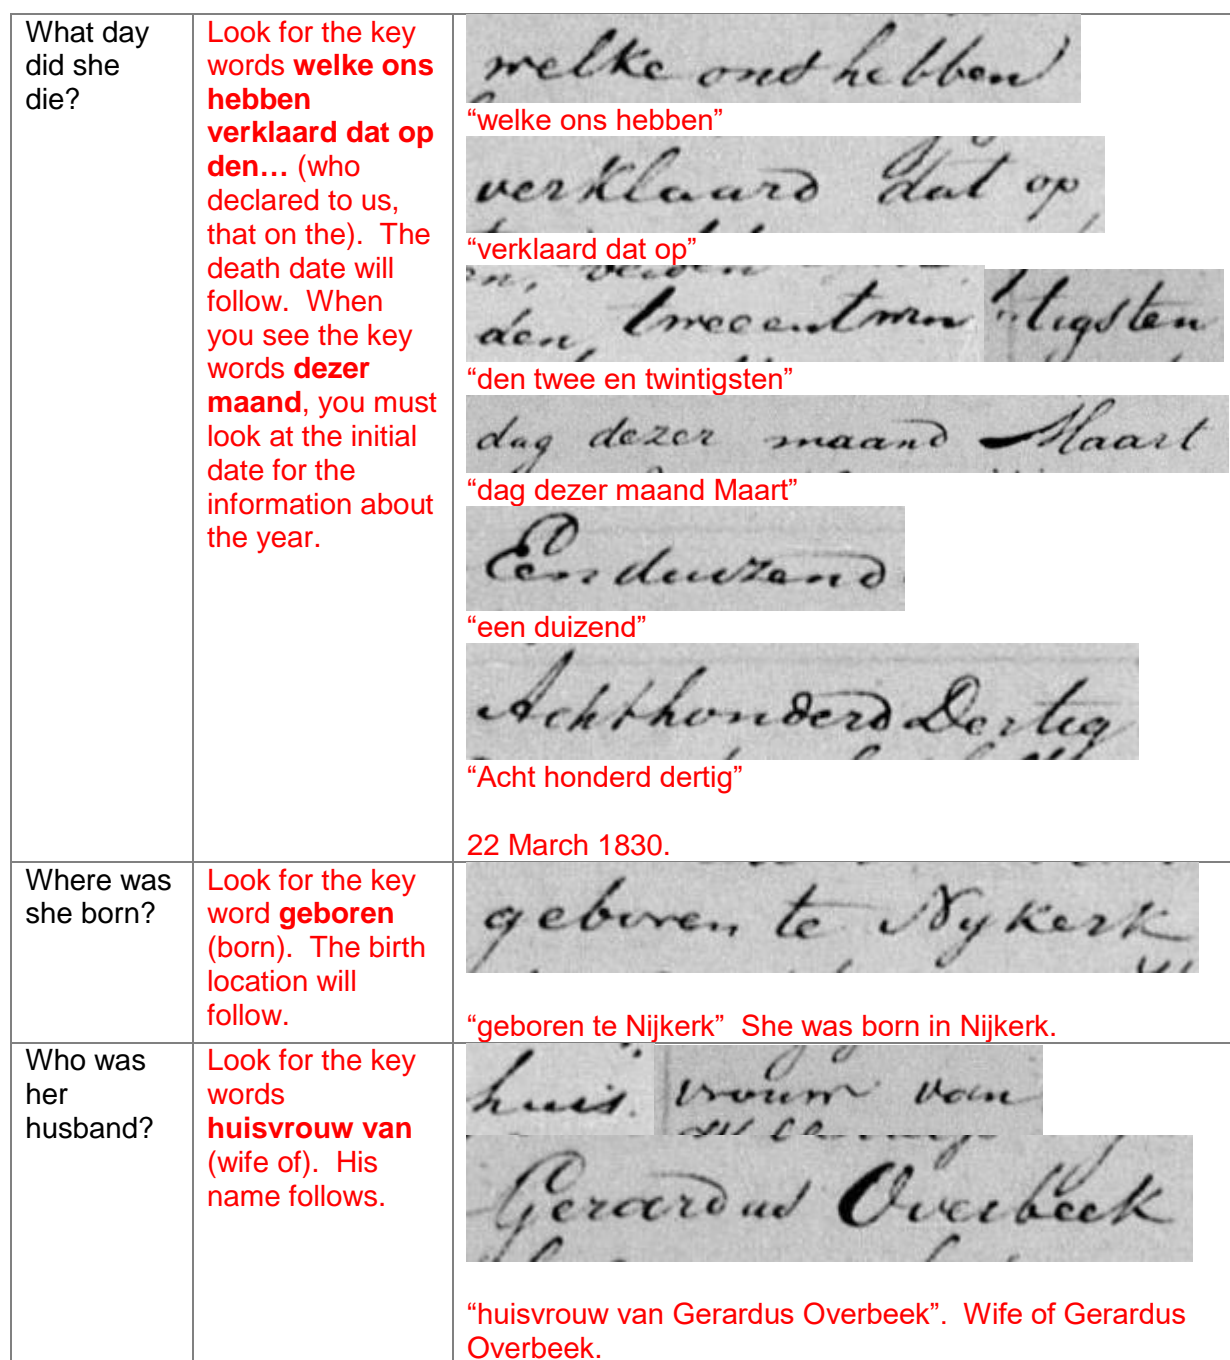 What day
did she
die?
Look for the key
words welke ons
hebben
verklaard dat op
den… (who
declared to us,
that on the).  The
death date will
follow.  When
you see the key
words dezer
maand, you must
look at the initial
date for the
information about
the year.
welke ons hebben
“welke ons hebben”
verklaard dat op
“verklaard dat op”
den, tweeentwin tigsten
“den twee en twintigsten”
dag dezer maand Maart
“dag dezer maand Maart”
Een duizend
“een duizend”
Achthonderd Dertig
“Acht honderd dertig”
22 March 1830.
Where was
she born?
Look for the key
word geboren
(born).  The birth
location will
follow.
geboren te Nykerk
“geboren te Nijkerk”  She was born in Nijkerk.
Who was
her
husband?
Look for the key
words
huisvrouw van
(wife of).  His
name follows.
huis vrouw van
Gerardus Overbeek
“huisvrouw van Gerardus Overbeek”.  Wife of Gerardus
Overbeek.